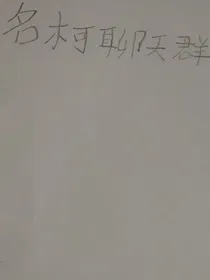 名柯聊天群